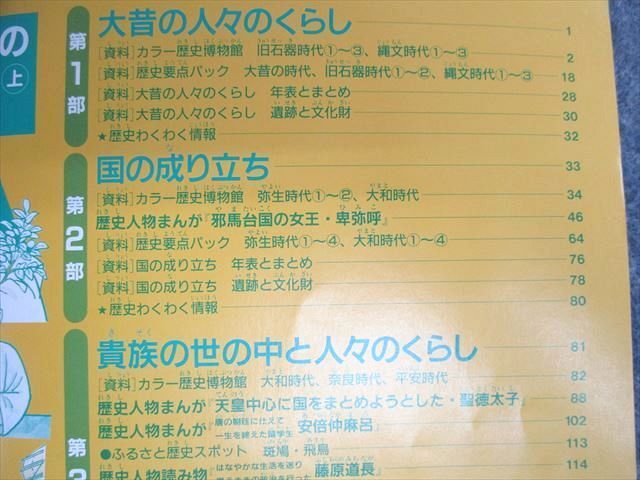 の
上
第1部
大昔の人々のくらし 1
[資料]カラー歴史博物館 旧石器時代①〜③、縄文時代①〜③ 2
[資料]歴史要点パック 大昔の時代、旧石器時代①〜②、縄文時代①〜③ 18
[資料]大昔の人々のくらし 年表とまとめ 28
[資料]大昔の人々のくらし 遺跡と文化財 30
★歴史わくわく情報 32
第2部
国の成り立ち 33
[資料]カラー歴史博物館 弥生時代①〜②、大和時代 34
歴史人物まんが『邪馬台国の女王・卑弥呼』 46
[資料]歴史要点パック 弥生時代①〜④、大和時代①〜④ 64
[資料]国の成り立ち 年表とまとめ 76
[資料]国の成り立ち 遺跡と文化財 78
★歴史わくわく情報 80
第3
貴族の世の中と人々のくらし 81
[資料]カラー歴史博物館 大和時代、奈良時代、平安時代 82
歴史人物まんが『天皇中心に国をまとめようとした・聖徳太子』 88
歴史人物まんが『唐の朝廷に仕えて一生を終えた留学生 安倍仲麻呂』 102
●ふるさと歴史スポット 斑鳩・飛鳥 113
歴史人物読み物『はなやかな生活を送り 藤原道長』 114